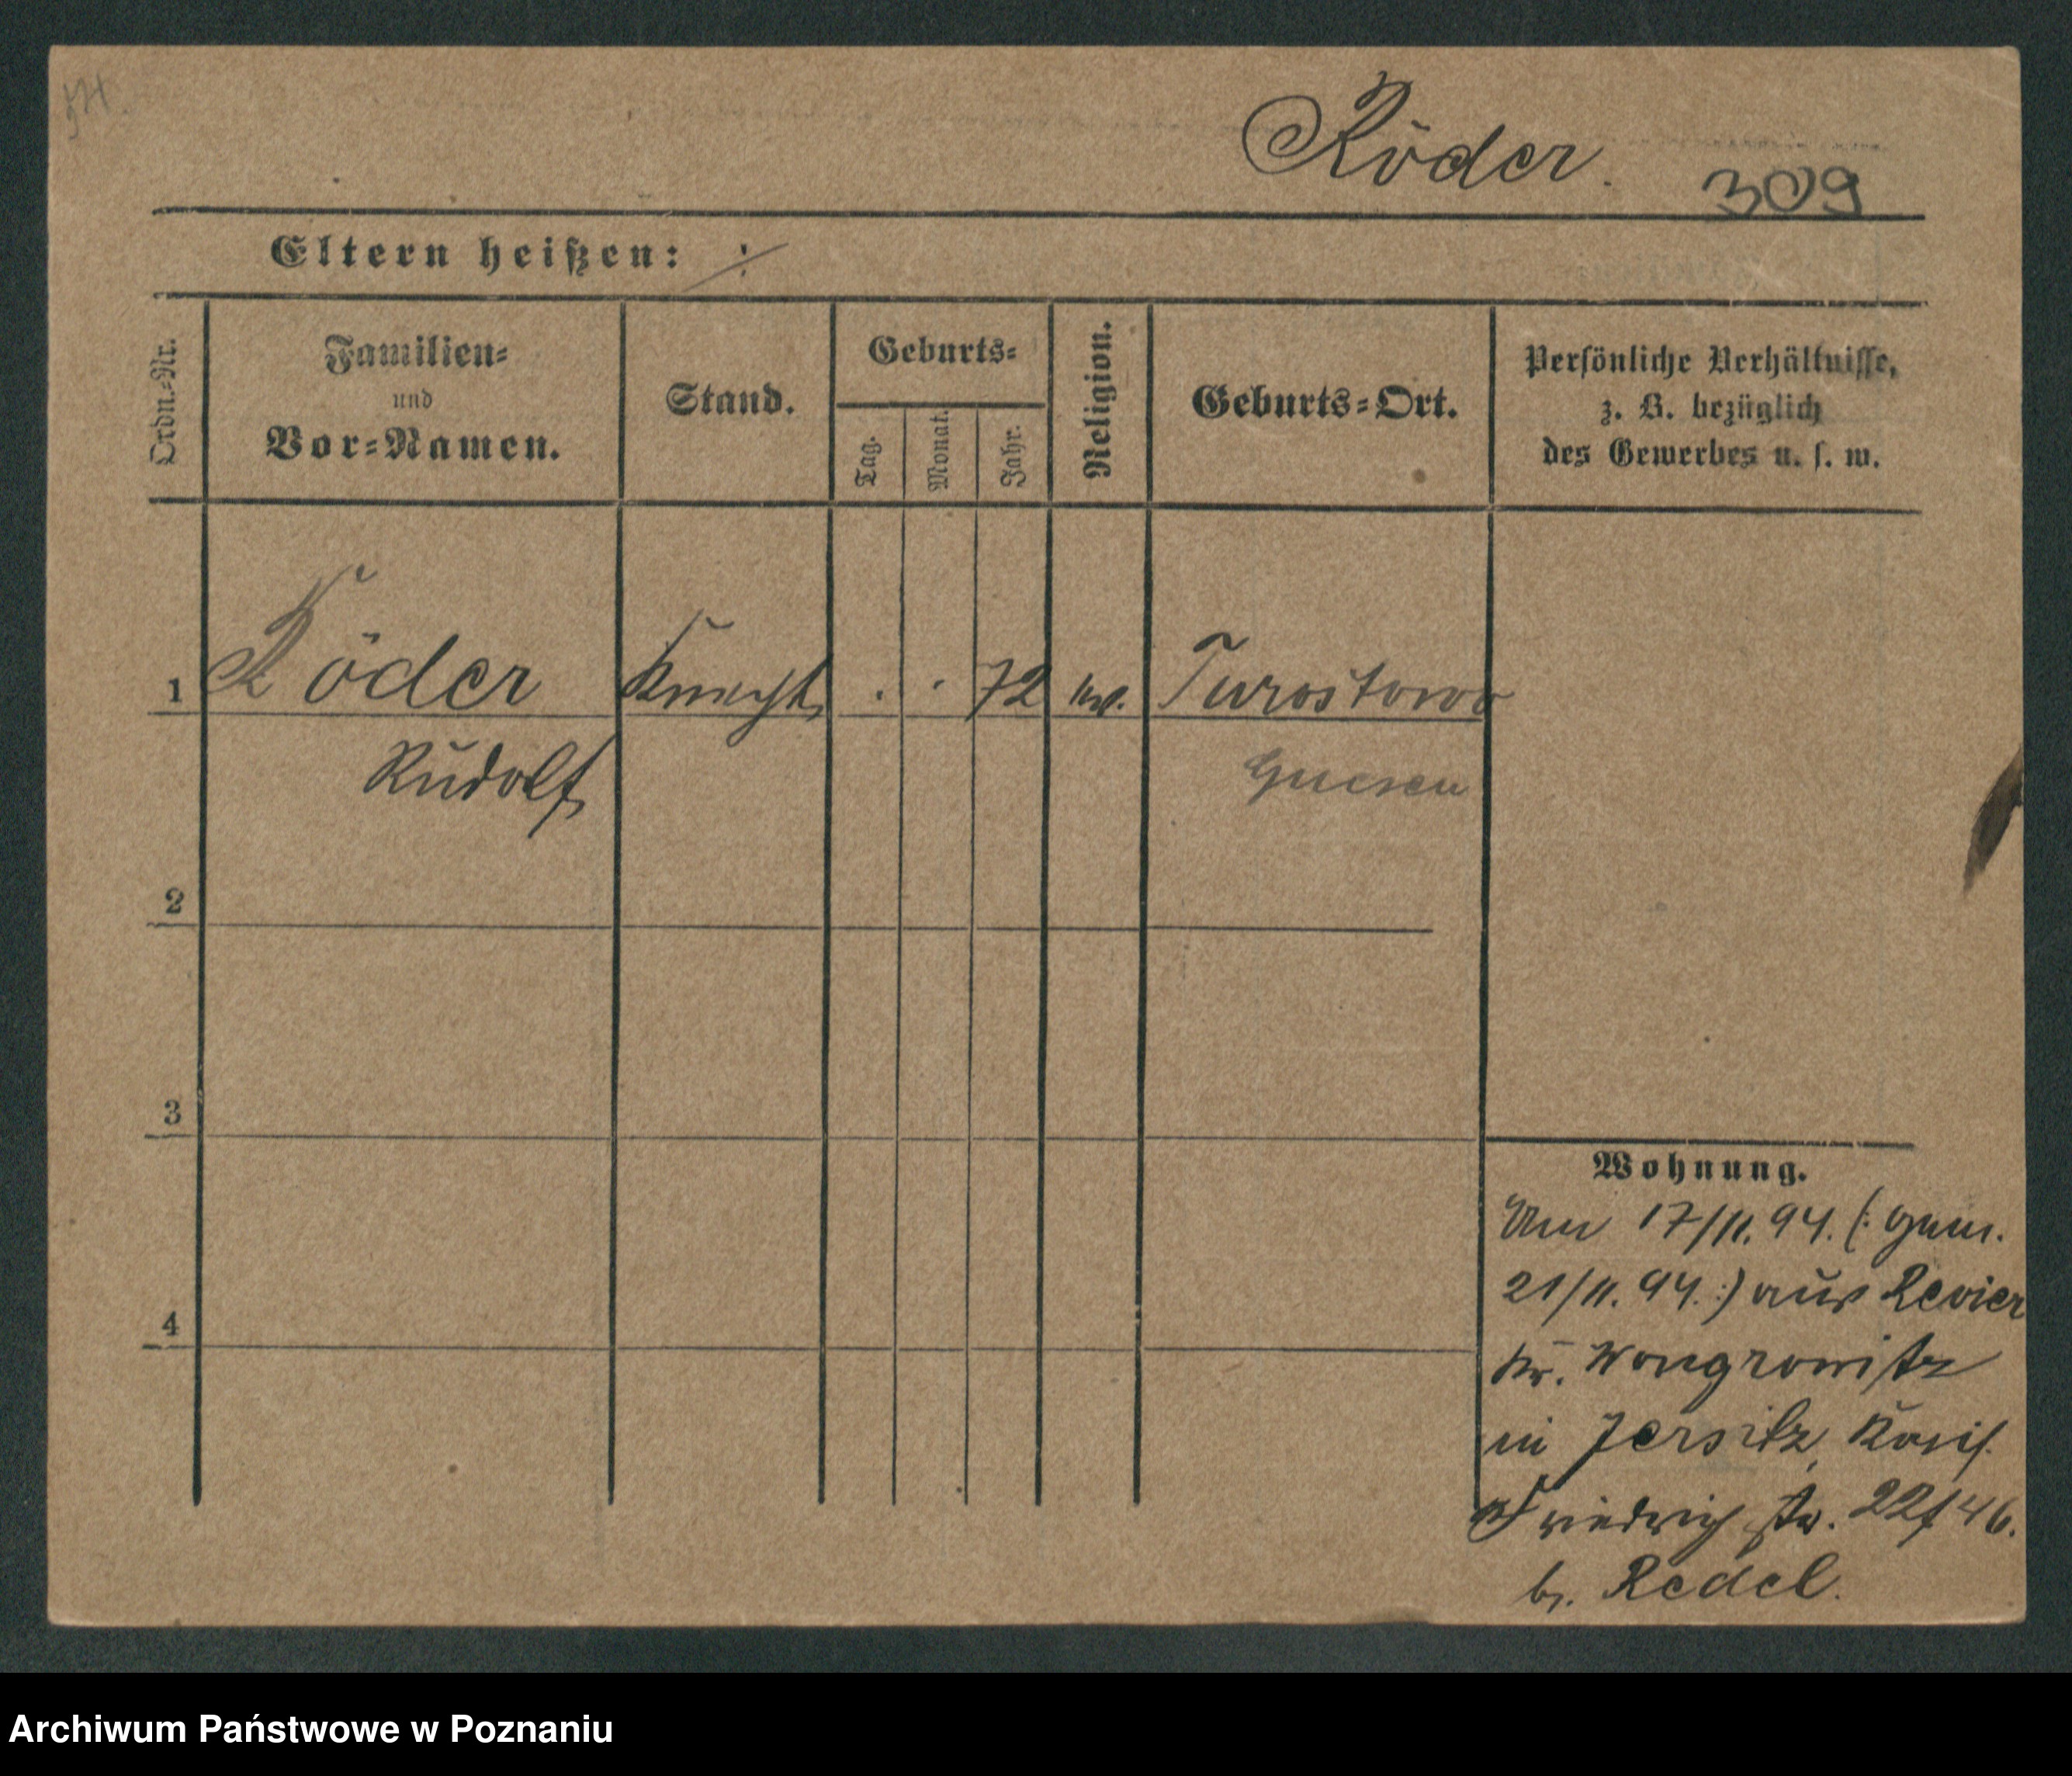 Röder.
309
Eltern heißen: ∕
Ordn.-Nr.
Familien-
und
Vor-Namen.
Stand.
Geburts-
Tag.
Monat.
Jahr.
Religion.
Geburts-Ort.
Persönliche Verhältnisse,
z. B. bezüglich
des Gewerbes u. s. w.
1 Röder Knecht . . 72 ev. Turostowo
Rudolf Gnesen
2
3
4
Wohnung.
Am 17/11. 94. (: Gem.
21/11. 94. :) aus Revier
Kr. Wongrowitz
in Jersitz,
Friedrichstr.
b. Redel.
Archiwum Państwowe w Poznaniu